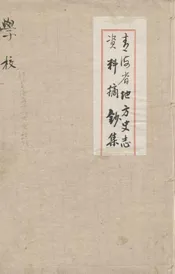 青海省地方史志
资料摘钞集
學校